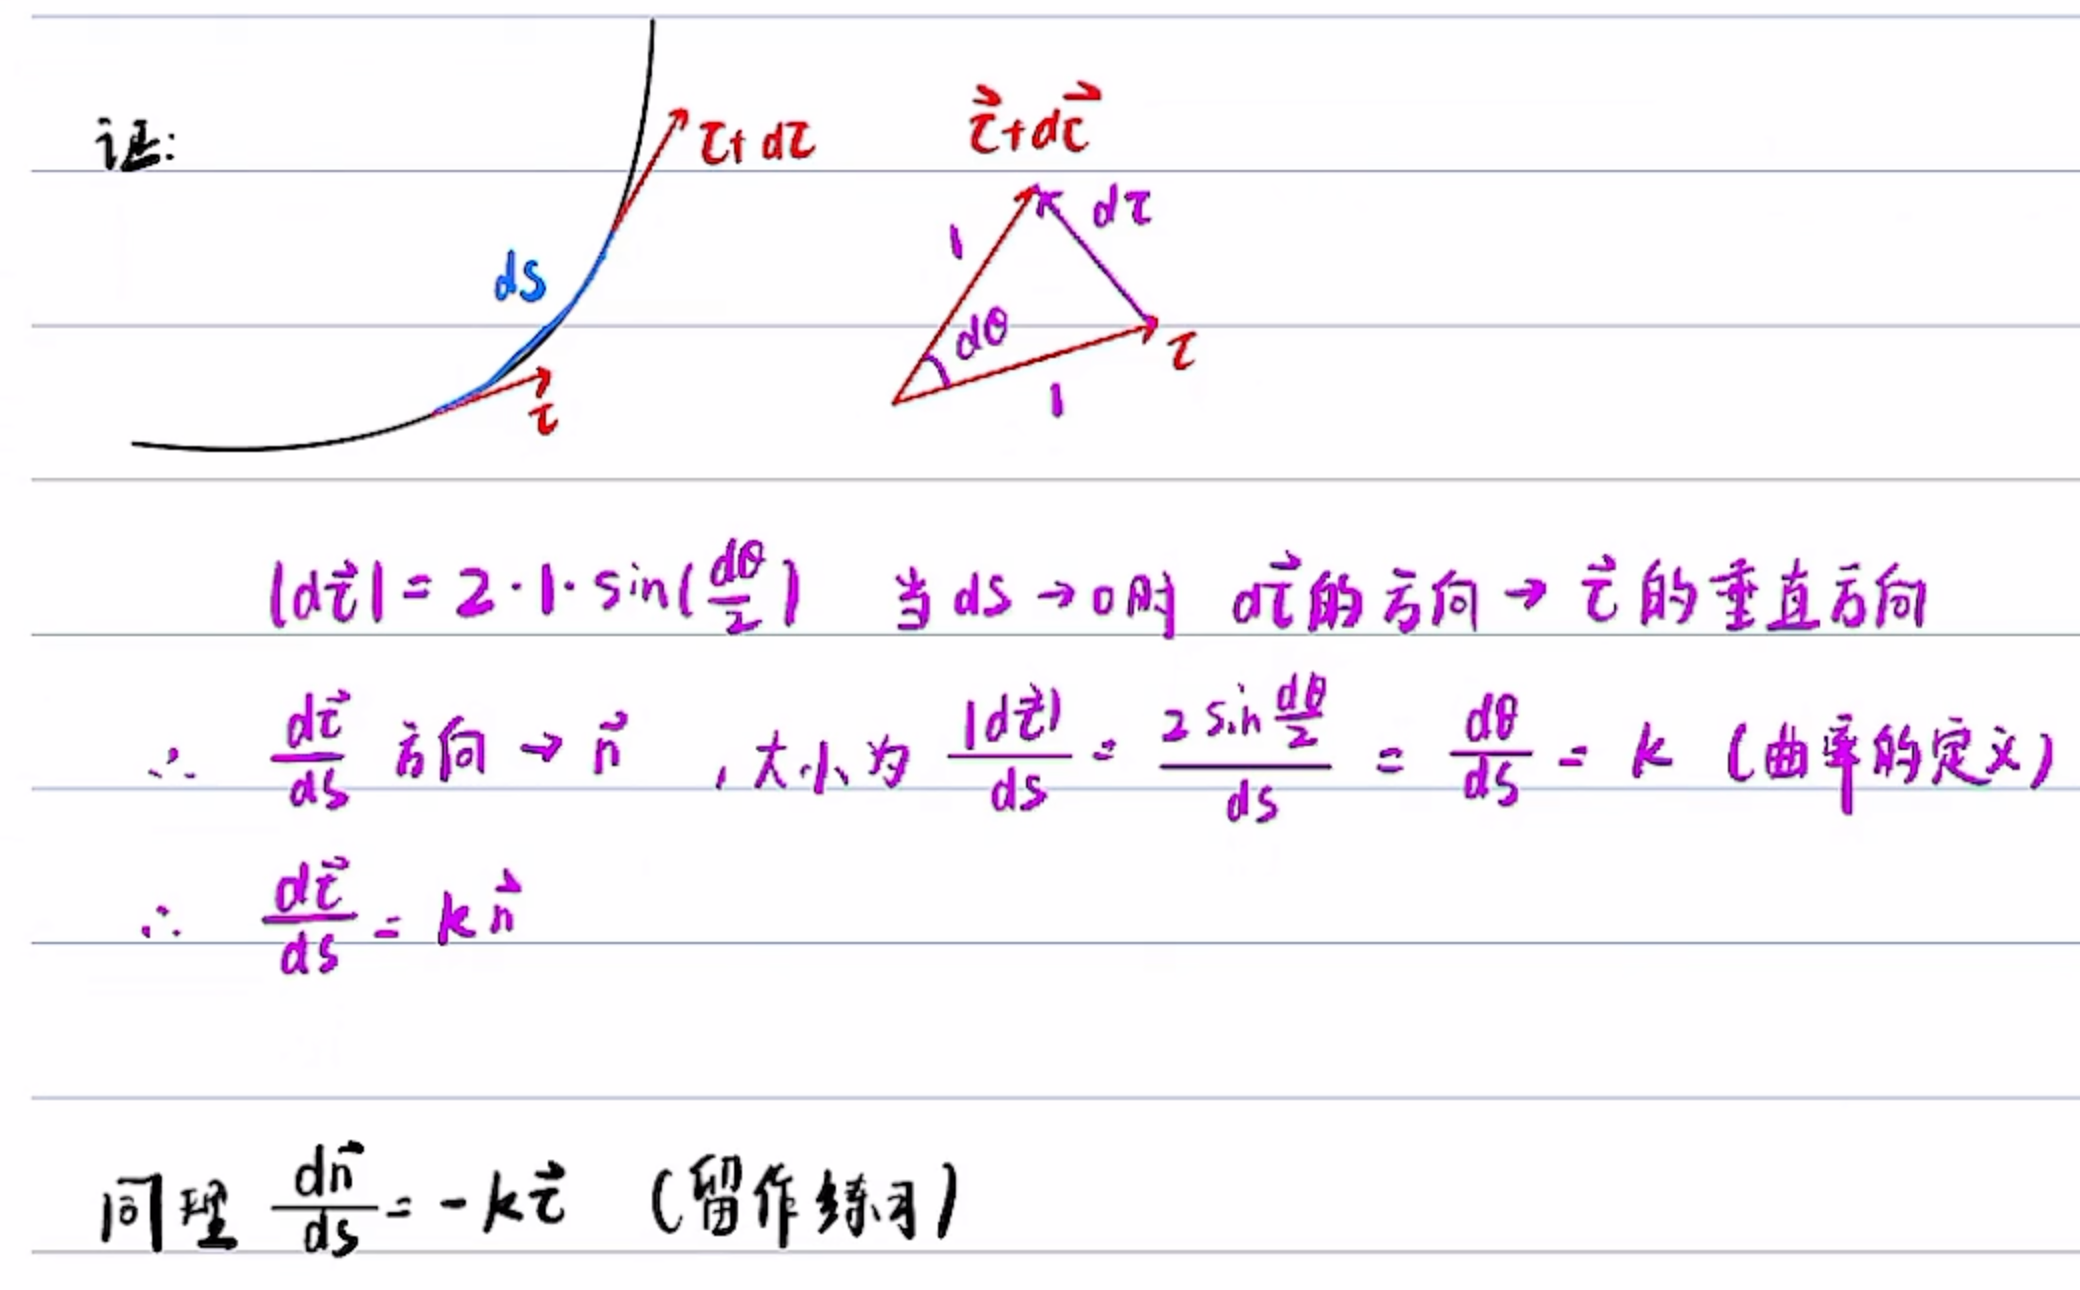 证:
τ+dτ
ds
τ
τ⃗+dτ⃗
dτ
1
dθ
τ
1
|dτ⃗| = 2·1·sin(dθ/2) 当 ds→0时 dτ⃗的方向→τ⃗的垂直方向
∴ dτ⃗/ds 方向→n⃗ ,大小为 |dτ⃗|/ds = 2sin(dθ/2)/ds = dθ/ds = k (曲率的定义)
∴ dτ⃗/ds = kn⃗
同理 dn⃗/ds = -kτ⃗ (留作练习)